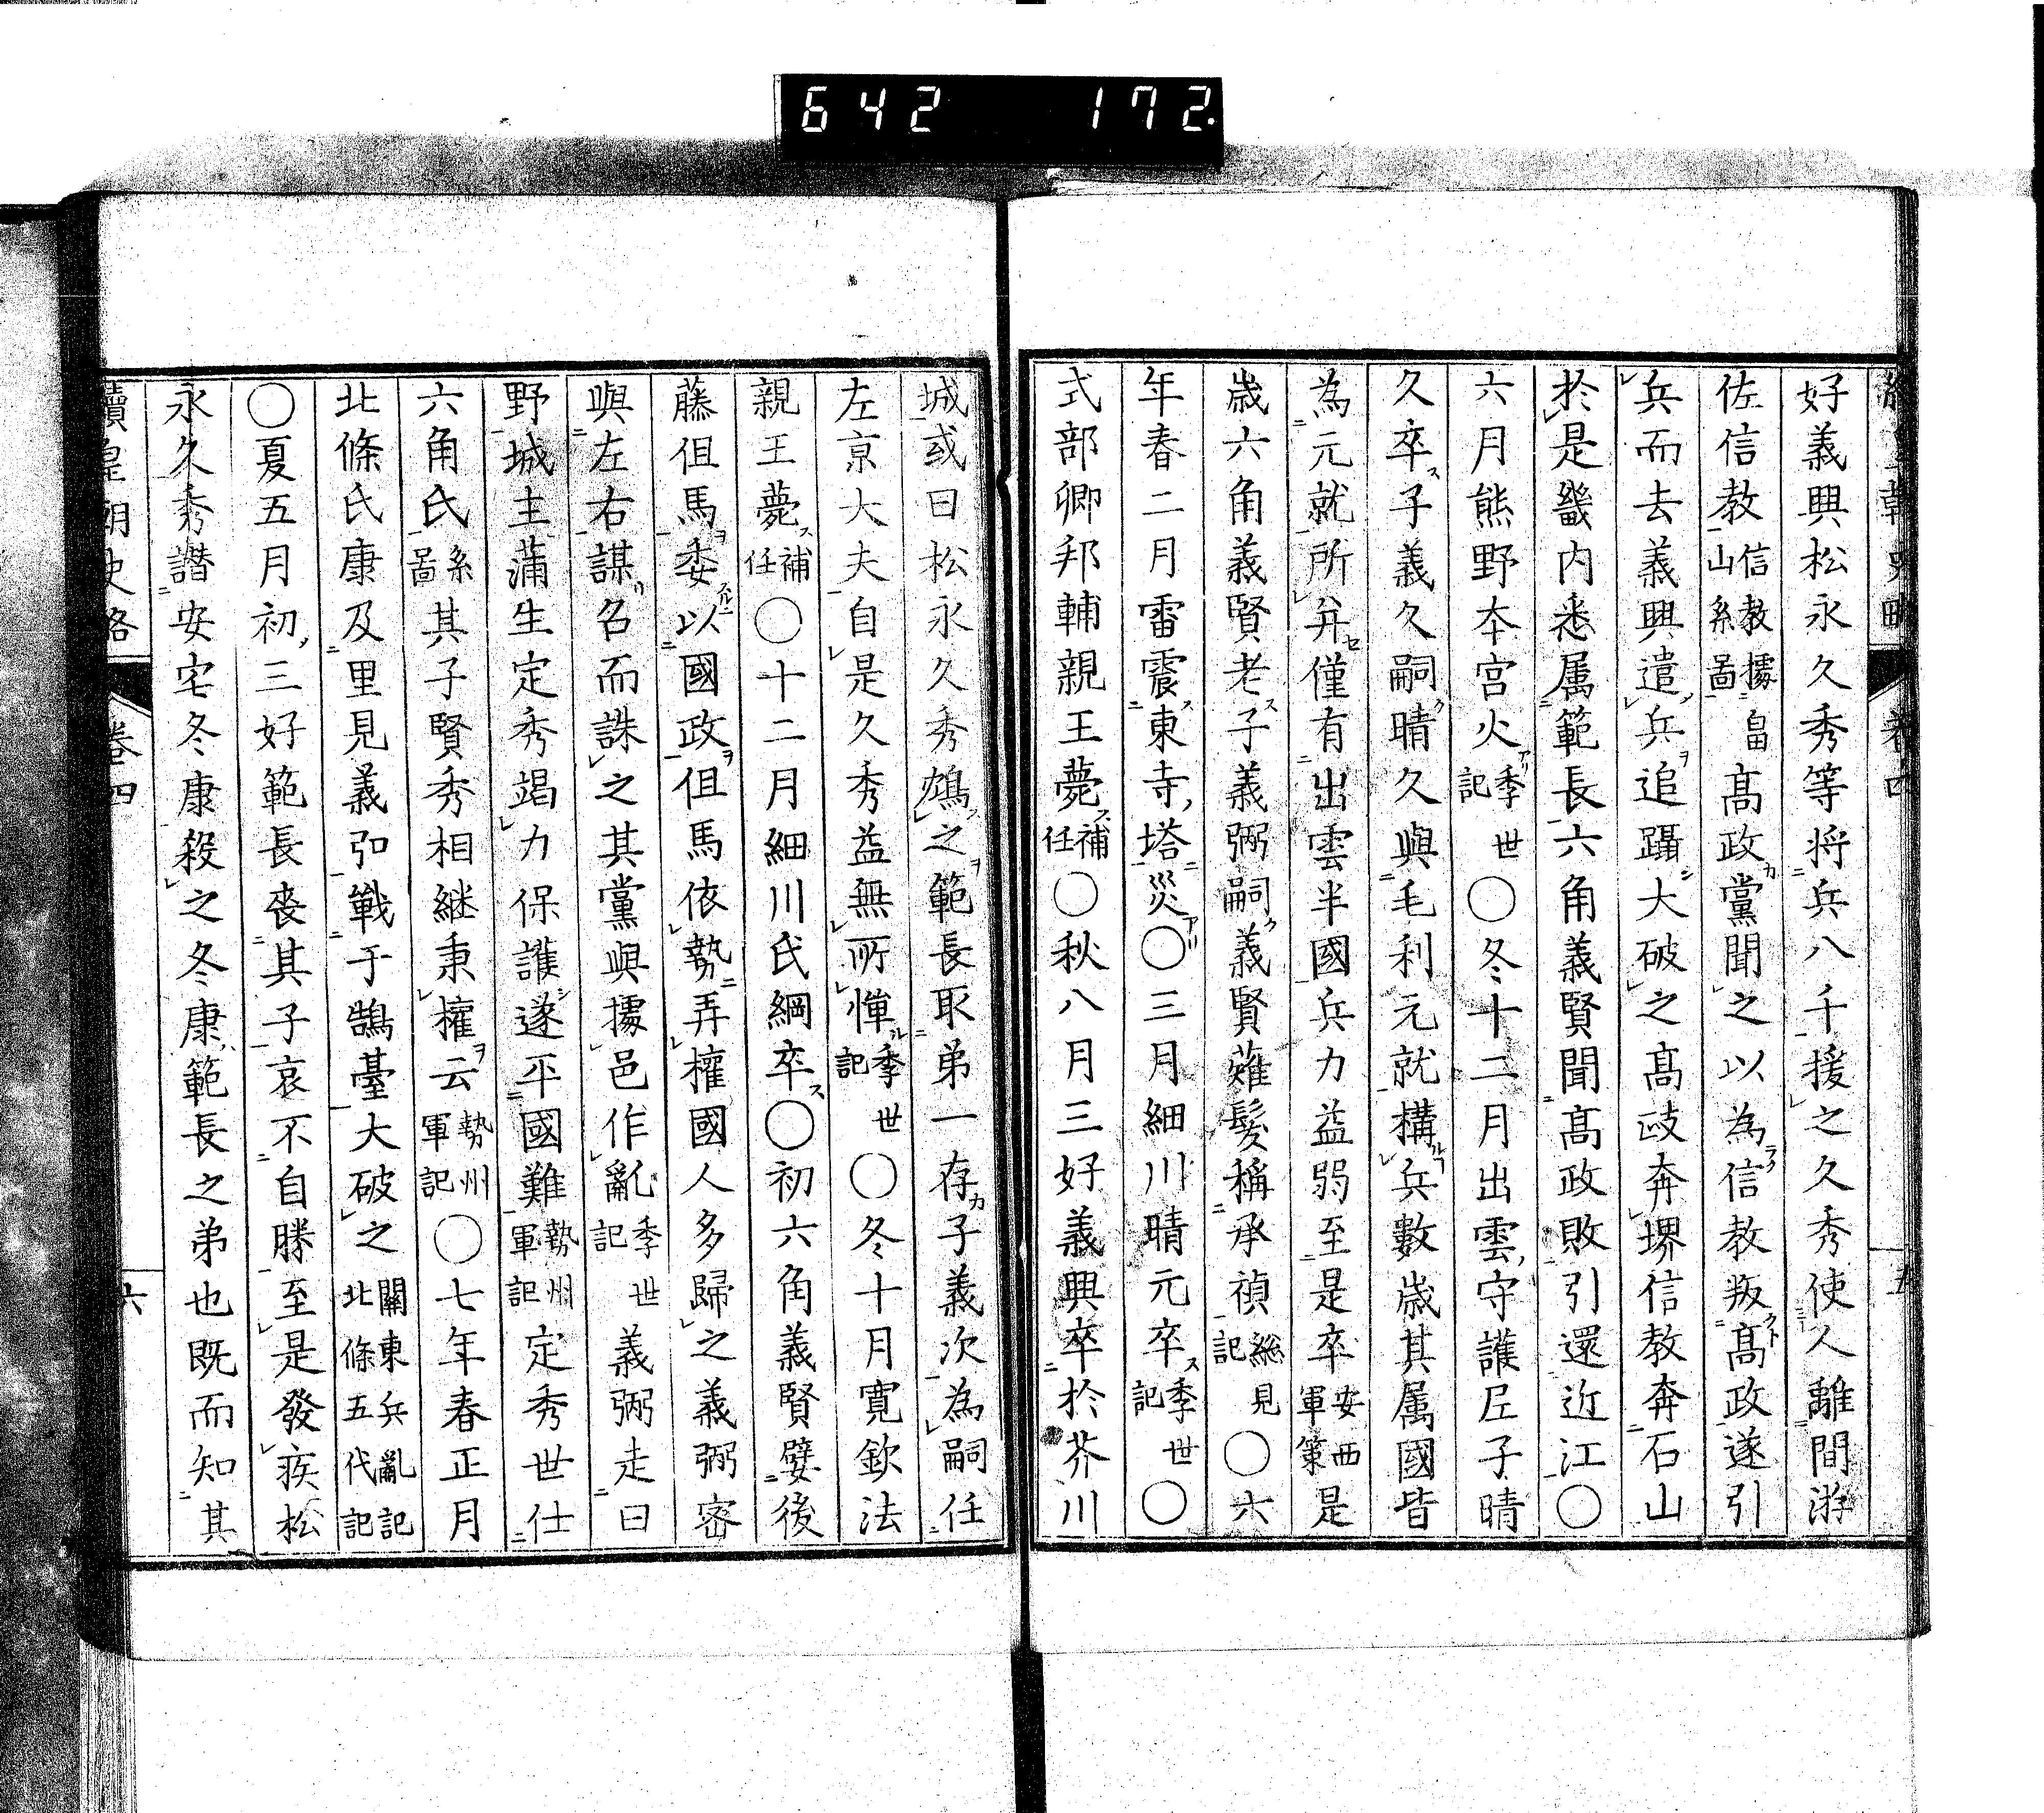 642 172.
好義興松永久秀等将兵八千援之久秀使人離間游
佐信教信教據山系啚畠高政黨聞之以為信教叛高政遂引
兵而去義興遣兵追躡大破之高政奔堺信教奔石山
於是畿内悉属範長六角義賢聞高政敗引還近江〇
六月熊野本宮火季世記〇冬十二月出雲守護尼子晴
久卒子義久嗣晴久與毛利元就構兵數歳其属國皆
為元就所弁僅有出雲半國兵力益弱至是卒安西軍策是
歳六角義賢老子義弼嗣義賢薙髮稱承禎総見記〇六
年春二月雷震東寺塔災〇三月細川晴元卒季世記〇
式部卿邦輔親王薨補任〇秋八月三好義興卒於芥川
城或曰松永久秀鴆之範長取弟一存子義次為嗣任
左京大夫自是久秀益無所憚季世記〇冬十月寛欽法
親王薨補任〇十二月細川氏綱卒〇初六角義賢嬖後
藤但馬委以國政但馬依勢弄權國人多歸之義弼密
與左右謀召而誅之其黨與據邑作亂季世記義弼走日
野城主蒲生定秀竭力保護遂平國難勢州軍記定秀世仕
六角氏系啚其子賢秀相継秉權云勢州軍記〇七年春正月
北條氏康及里見義弘戰于鵠臺大破之關東兵亂記北條五代記
〇夏五月初三好範長喪其子哀不自勝至是發疾松
永久秀譖安宅冬康殺之冬康範長之弟也既而知其
續皇朝史略 卷四 六